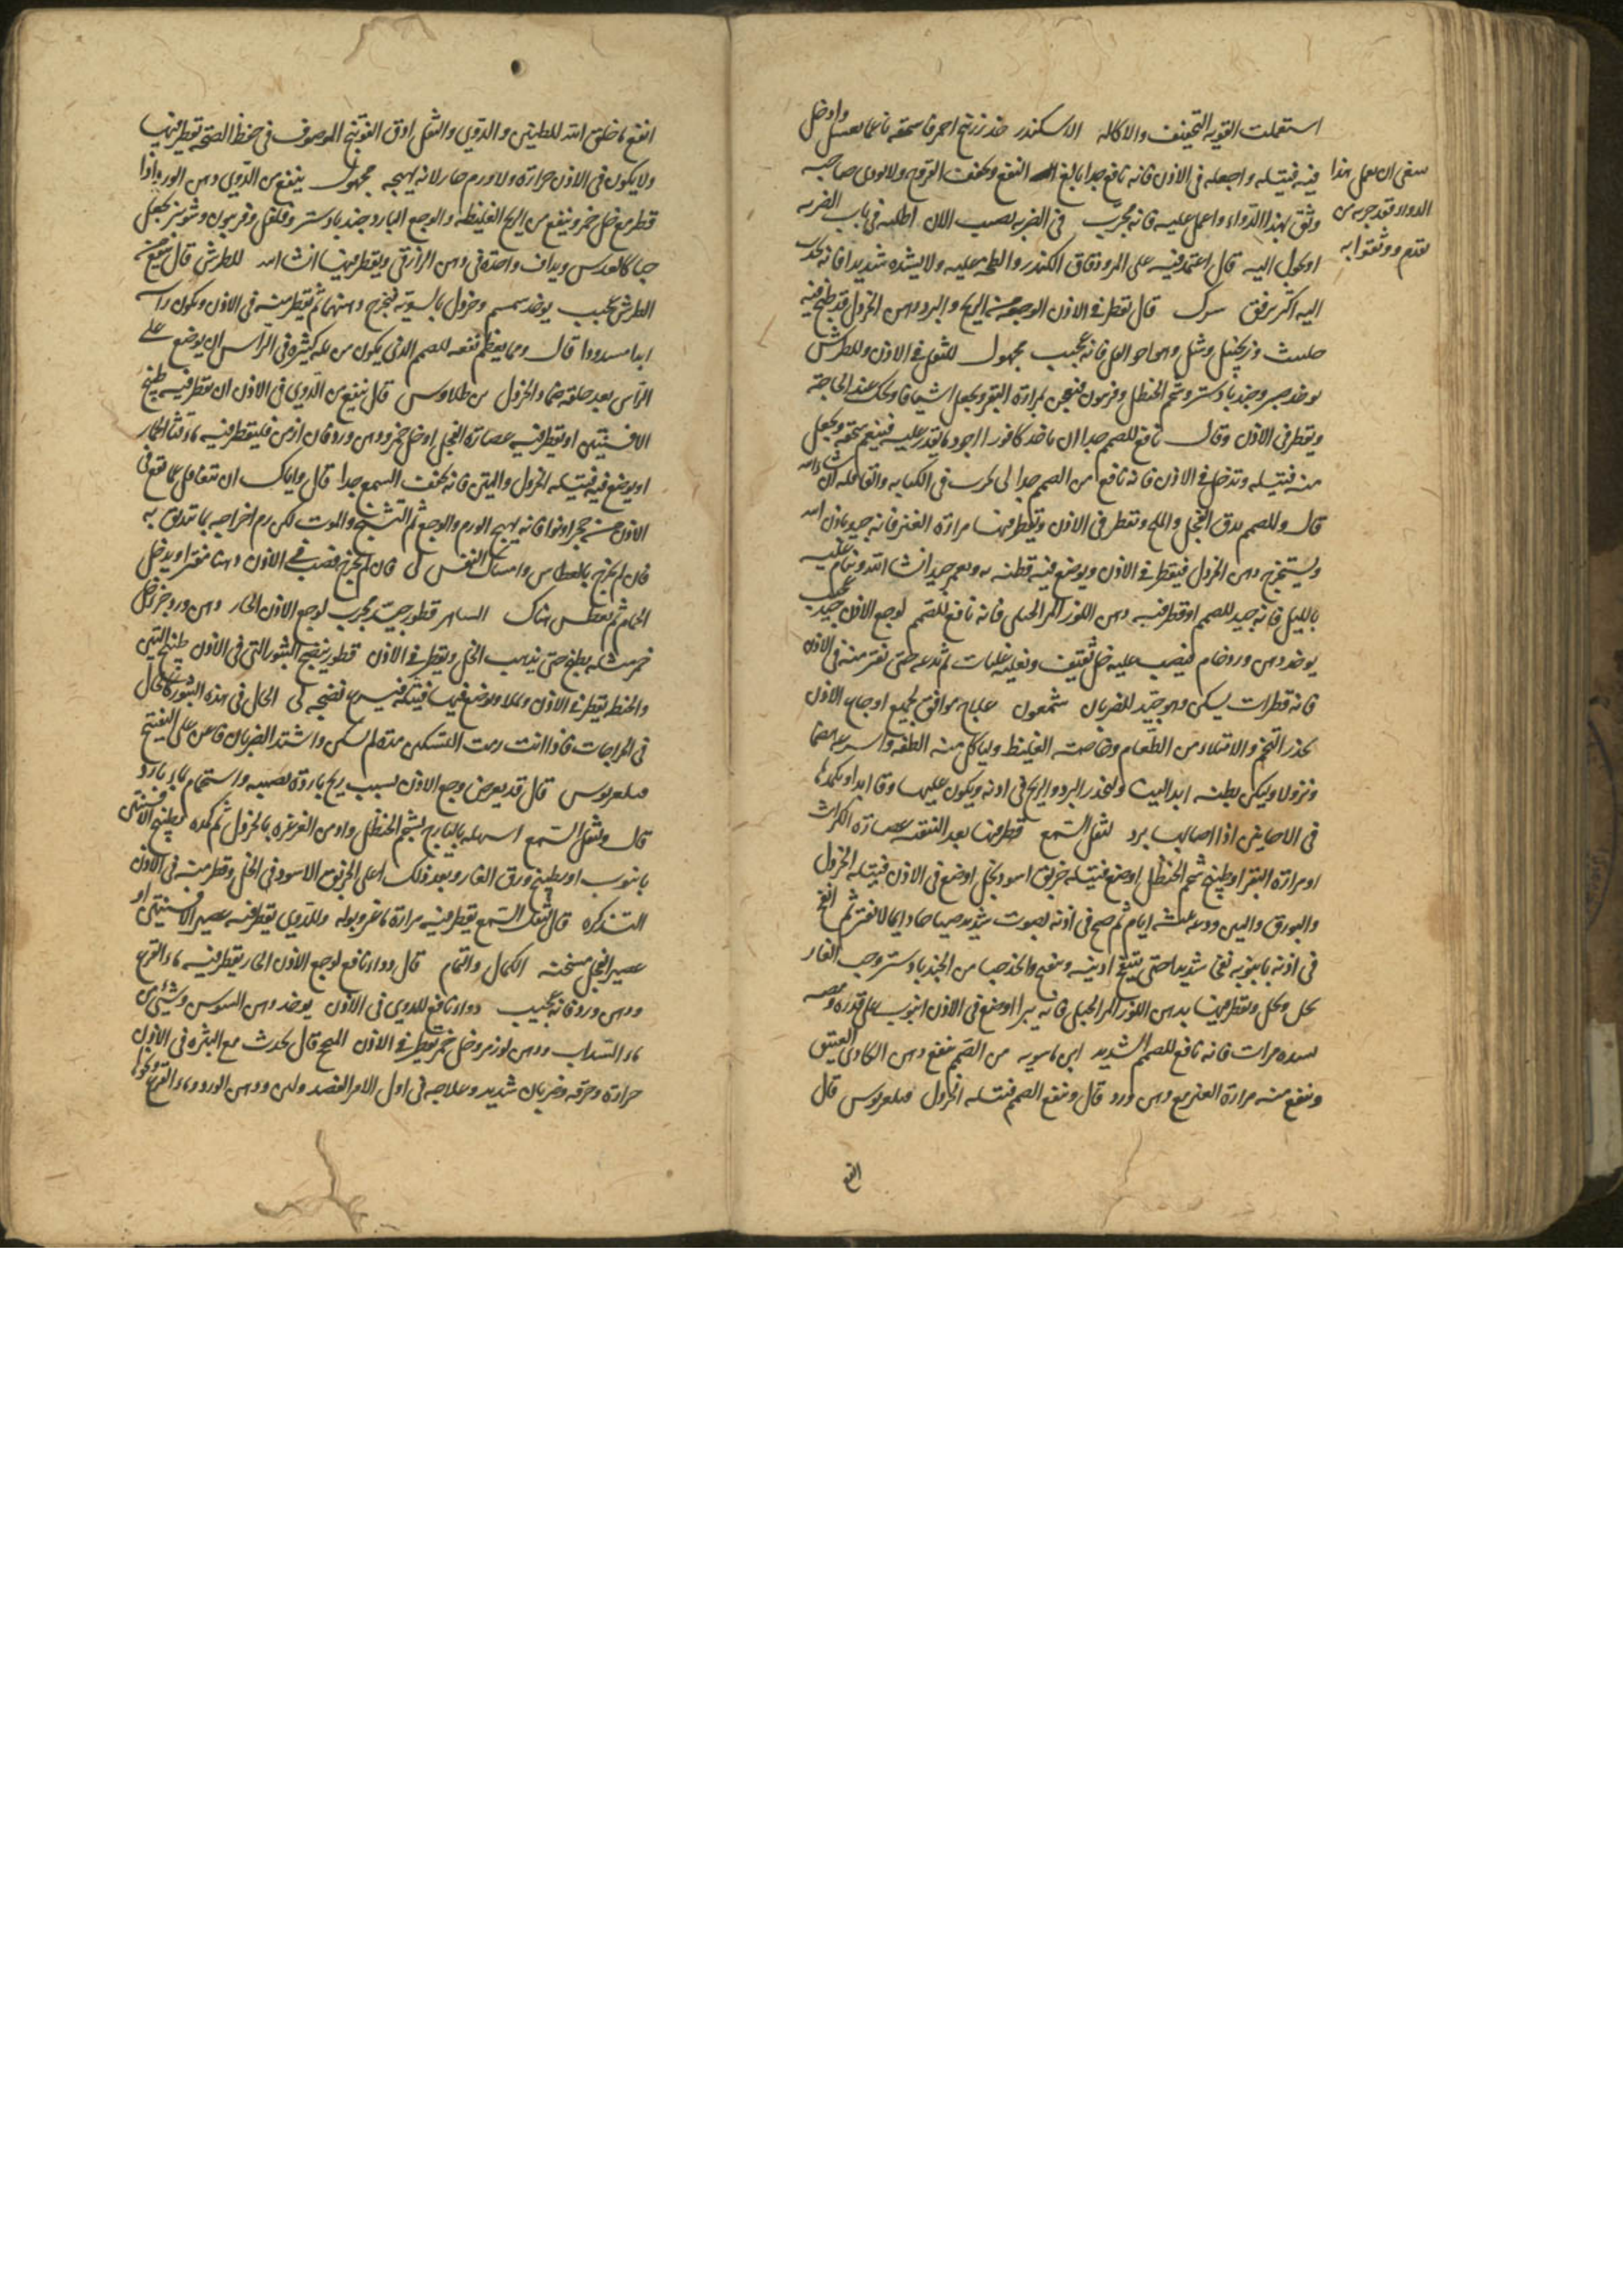 استعملت القوية التجفيف والاكالة الاسكندر خذ زرنيخ احمر فاسحقه ناعما بعسل وادخل
فيه فتيلة واجعله فى الاذن فانه نافع جدا بالغ النفع ويجفف القروح ولا يوذى صاحبه
وثق بهذا الدواء واعمل عليه فانه مجرب فى الضربة تصيب الاذن اطلبه فى باب الضربة
او يحول اليه قال اعتمد فيه على المر ودقاق الكندر والطخه عليه ولا يشده شديدا فانه
اليه اكثر برفق قال يقطر فى الاذن الوجعة من الريح والبرد دهن الخردل قد طبخ فيه
حلتيت وزنجبيل فانه عجيب مجهول للثقل فى الاذن وللطرش
يوخذ صبر وجندبادستر وشحم الحنظل وفربيون فيعجن بمرارة البقر ويجعل اشيافا ويحك عند الحاجة
ويقطر فى الاذن وقال نافع للصمم جدا ان ياخذ كافورا اجود ما يقدر عليه فينعم سحقه ويجعل
منه فتيلة وتدخل فى الاذن فانه نافع من الصمم جدا ان شاء الله
قال وللصمم يدق الفجل والملح ويقطر فى الاذن ويقطر فيها مرارة العنز فانه جيد باذن الله
ويستخرج دهن الخردل فيقطر فى الاذن ويوضع فيه قطنة جيد انشا الله وينام عليه
بالليل فانه جيد للصمم او قطر فيه دهن اللوز المر الجبلى فانه نافع للصمم لوجع الاذن جيد عجيب
يوخذ دهن ورد خام فيصب عليه خل ثقيف ويغليه غليات ثم تدعه حتى يفتر منه فى الاذن
فانه قطرات يسكن وهو جيد للضربان شمعون علاج موافق لجميع اوجاع الاذن
يحذر التخم والامتلاء من الطعام وخاصة الغليظ وليأكل منه الطفه واسرعه هضما
ونزولا وليكن بطنه ابدا لينا وليحذر البرد والريح فى اذنه ويكون عليها وقا ابدا ويكمدها
فى الاحايين اذا اصابها برد لثقل السمع قطر فيها بعد التنقية عصارة الكراث
او مرارة البقر او طبيخ شحم الحنظل او ضع فتيلة خربق اسود بخل او ضع فى الاذن فتيلة الخردل
والبورق والتين ودعه ثلثة ايام ثم صح فى اذنه بصوت شديد صياحا دايما لا يفتر ثم انفخ
فى اذنه بانبوبة نفخا شديدا حتى ينتفخ اذنيه وخذ حبا من الجندبادستر وحب الغار
بخل ويقطر فيها بدهن اللوز المر الجبلى فانه يبرا او ضع فى الاذن انبوب
مرات فانه نافع للصمم الشديد ابن ماسويه من الصمم ينفع دهن الكاذى العتيق
وينفع منه مرارة العنز مع دهن ورد قال وينفع الصمم فتيلة الخردل قال
انفع
ينبغى ان يعمل بهذا
الدواء فقد جربه من
تقدم ووثقوا به
انفع ما خلق الله للطنين والدوى والثقل اوق الفوتنج الموصوف فى حفظ الصحة تقطر فيها
ولا يكون فى الاذن حرارة ولا ورم حار لانه يهيجه مجهول ينفع من الدوى دهن الورد اذا
قطر مع خل خمر وينفع من الريح الغليظة والوجع البارد جندبادستر وفلفل وفربيون وشونيز يجعل
حبا كالعدس ويداف واحدة فى دهن الرازقى ويقطر فيها انشا الله للطرش قال ينفع من
الطرش عجيب يوخذ سمسم وخردل بالسوية فيخرج دهنهما ثم يقطر منه فى الاذن ويكون راسه
ابدا مسدودا قال ومما يعظم نفعه للصمم الذى يكون من علة كثيرة فى الراس ان يوضع على
الراس بعد حلقه ضماد الخردل قال ينفع من الدوى فى الاذن ان يقطر فيه طبيخ
الافسنتين او يقطر فيه عصارة الفجل او خل خمر ودهن ورد فان ازمن فليقطر فيه ماء قثا الحمار
او يوضع فيه فتيلة الخردل والتين فانه يخفف السمع جدا قال واياك ان تتغافل عما يقع فى
الاذن من حجر او نواة فانه يهيج الورم والوجع ثم التشنج والموت لكن رم اخراجه بما تبدى به
فان لم يخرج بالعطاس وامساك النفس فان لم يخرج فصب فى الاذن دهنا مفترا او يدخل
الحمام ثم يعطس هناك الساهر قطور جيد مجرب لوجع الاذن الحار دهن ورد جزو خل
خمر مثله يطبخ حتى يذهب الخل ويقطر فى الاذن قطور ينضج البثور التى فى الاذن طبيخ التين
والحنطة يقطر فى الاذن ويوضع فيها فتيلة فيسرع نضجه لى الحال فى هذه البثور كالحال
فى الجراحات فاذا انت رمت التسكين مدة لم يسكن واشتد الضربان فاعن على التفتيح
قال قد يعرض وجع الاذن بسبب ريح باردة تصيبه واستحمام بماء بارد
قال ولثقل السمع اسهله بايارج بشحم الحنظل وادمن الغرغرة بالخردل ثم كمده بطبيخ الافسنتين
بانبوب او بطبيخ ورق الغار وبعد ذلك اغلى الخربق الاسود فى الخل وقطر منه فى الاذن
التذكرة قال لثقل السمع يقطر فيه مرارة ماعز وبوله وللدوى يقطر فيه عصير الافسنتين او
عصير الفجل مسخنة الكمال والتمام قال دواء نافع لوجع الاذن الحار يقطر فيه ماء القرع
ودهن ورد فانه عجيب دواء نافع للدوى فى الاذن يوخذ دهن السوسن وشىء من
ماء السداب ودهن لوز مر وخل خمر يقطر فى الاذن المسيح قال يحدث مع البثرة فى الاذن
حرارة وحرقة وضربان شديد وعلاجه فى اول الامر الفصد ولبن ودهن الورد وماء القرع ونحوها